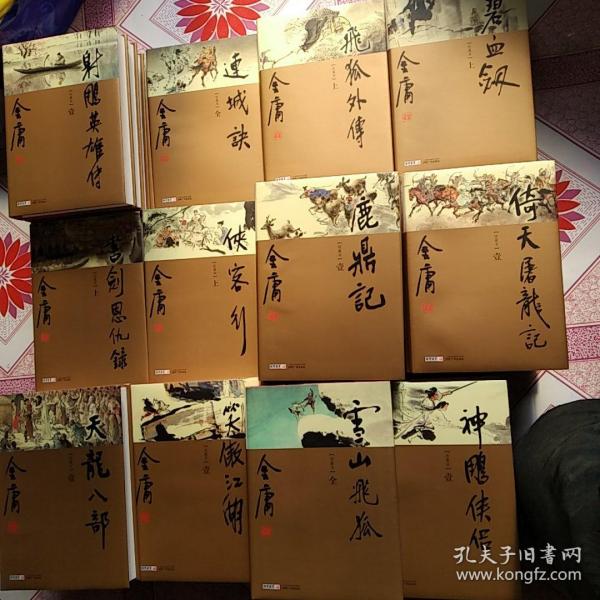 射鵰英雄傳
壹
金庸
連城訣
全
金庸
飛狐外傳
上
金庸
碧血劍
上
金庸
書劍恩仇錄
上
金庸
俠客行
上
金庸
鹿鼎記
壹
金庸
倚天屠龍記
壹
金庸
天龍八部
壹
金庸
笑傲江湖
壹
金庸
雪山飛狐
全
金庸
神鵰俠侶
壹
金庸
孔夫子旧书网
www.kongfz.com